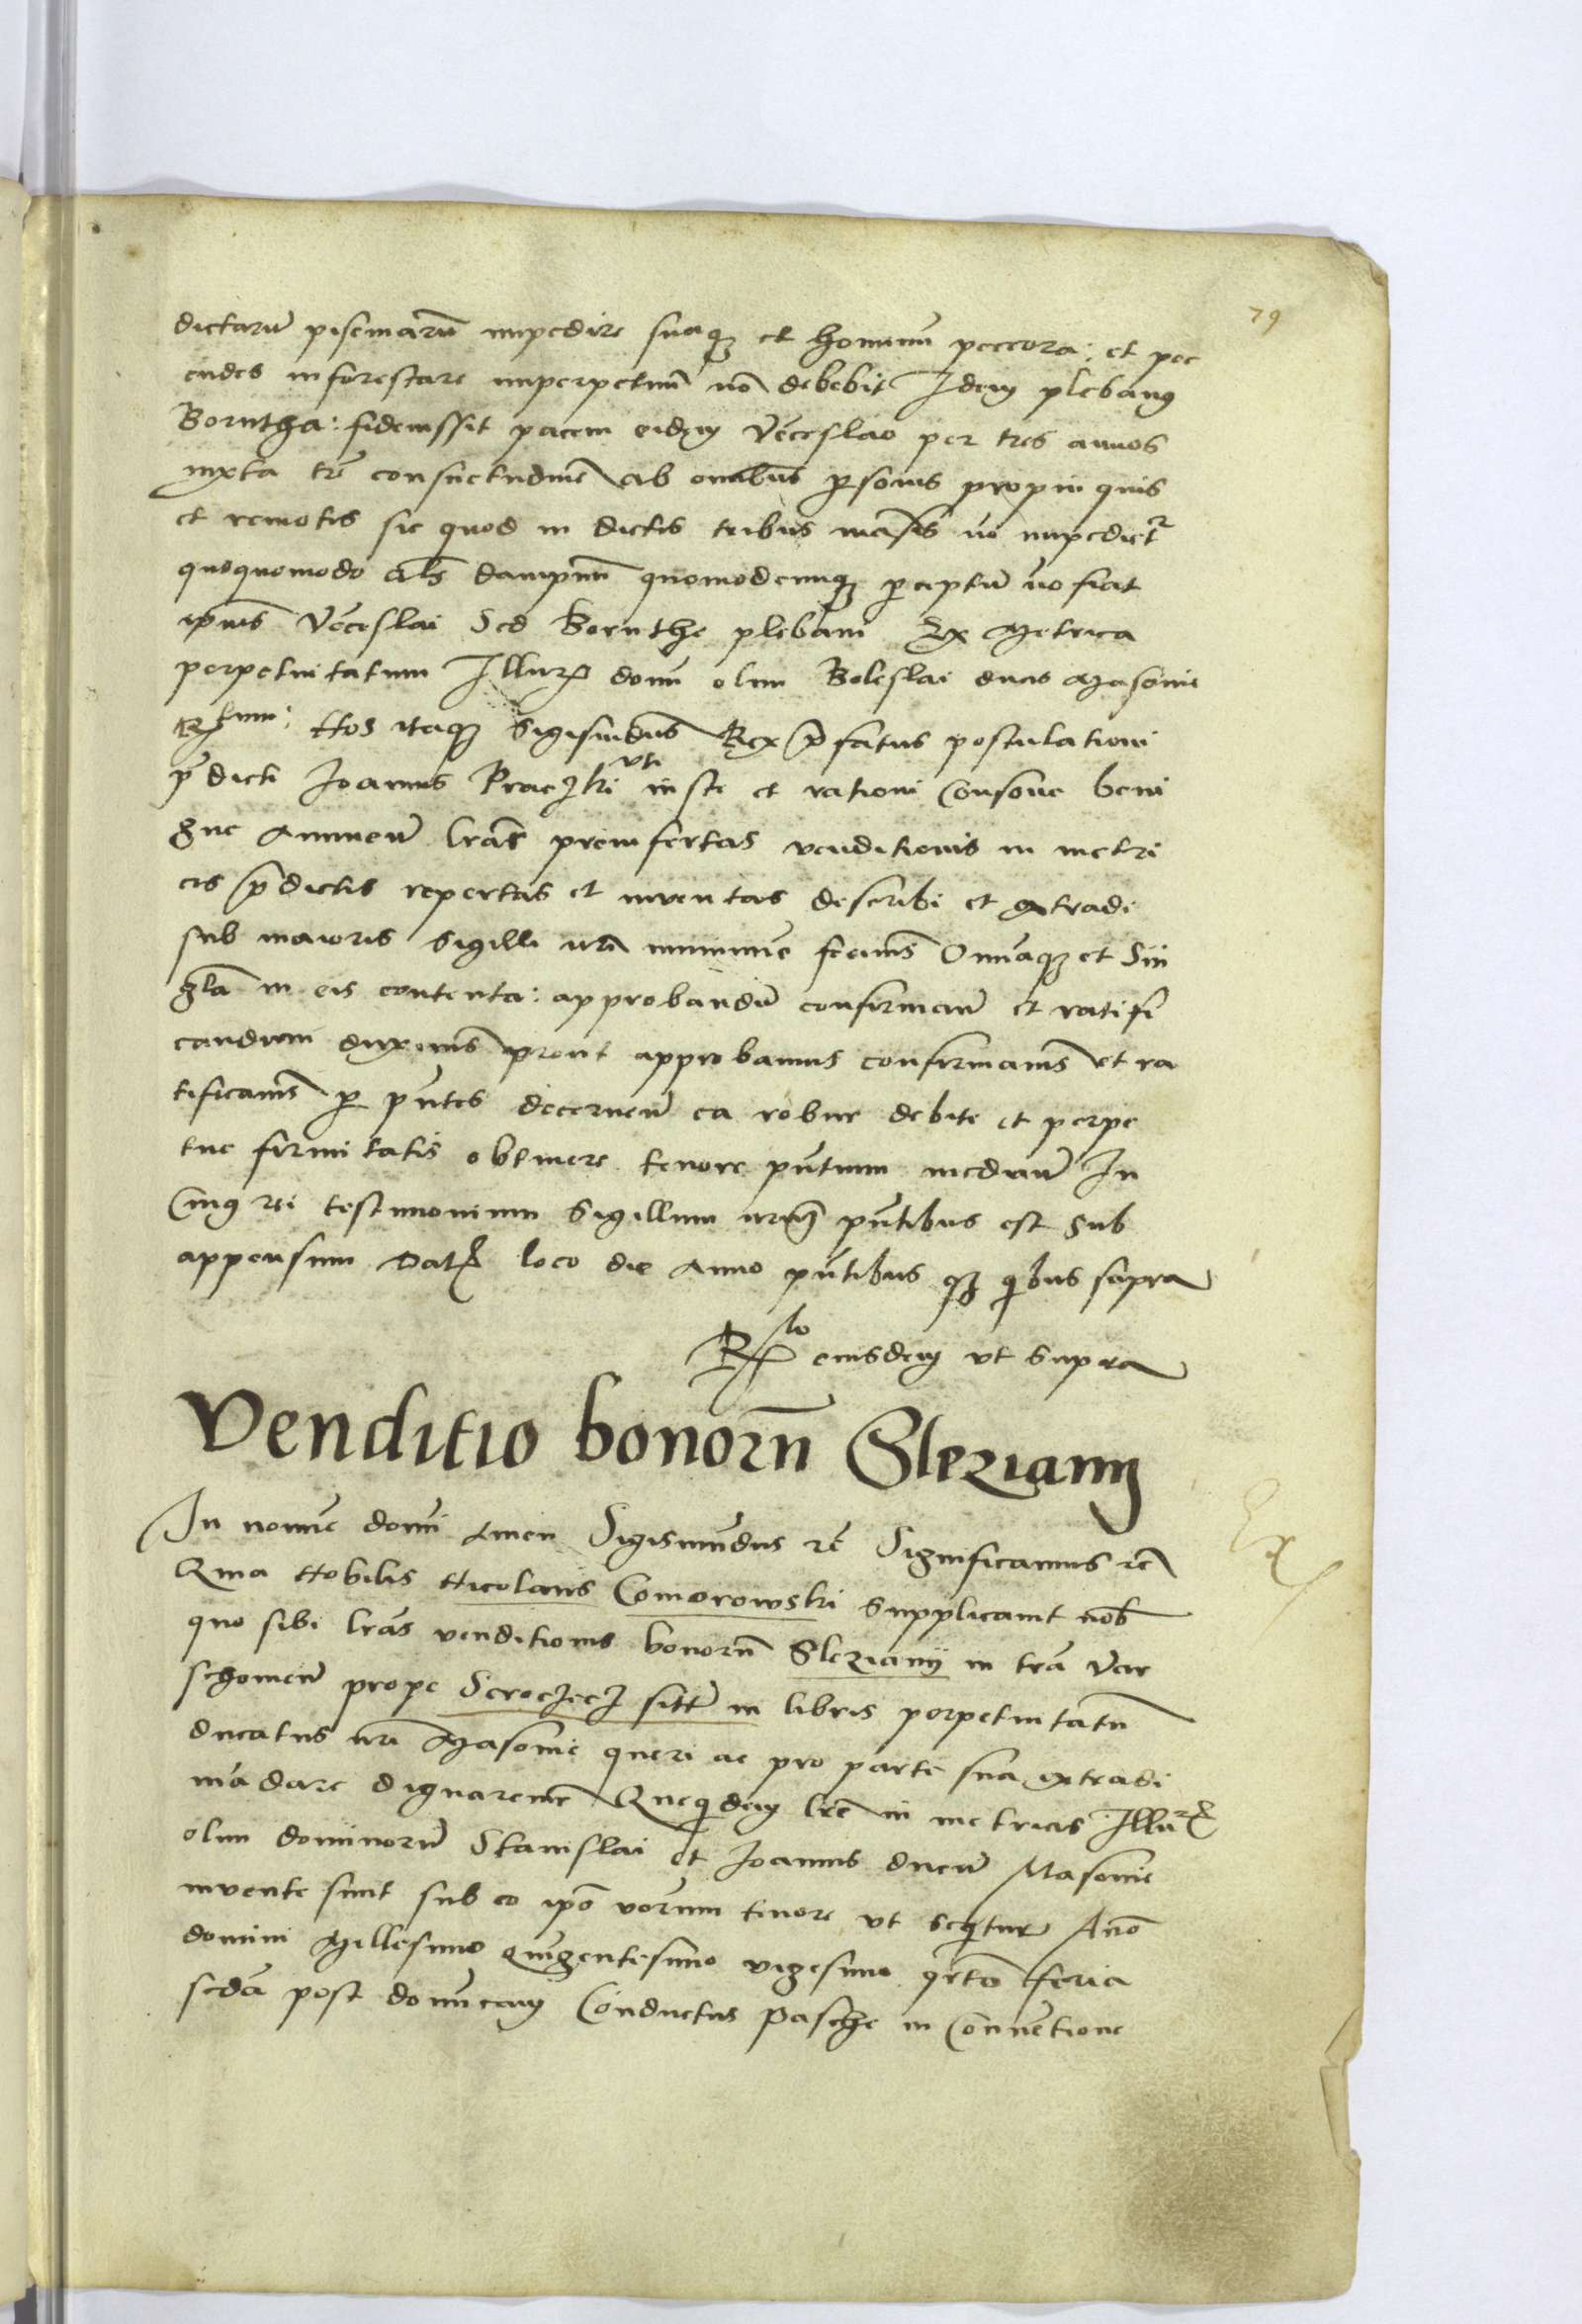 79
dictarũ piscinarũ impedire suaq3 et hominũ peccora: et pec
cudes inforestare imperpetuũ nõ debebit Idem plebanus
Borutha: fideiussit pacem eidem Vẽceslao per tres annos
iuxta tre consuetudinẽ ab omĩbus psonis propinquis
et remotis sic quod in dictis tribus mãsis nõ impedietr
quoquomodo als dampnũ quomodcunq3 pceptũ nõ fiat
ipius Vẽceslai Sed Boruthe plebani Ex Metrica
perpetuitatum Illur domĩ olim Boleslai ducis Masouie
Rtum: Nos itaq3 Sigismũdus Rex pfatus postulationi
pdicti Joannis Praczki vti iuste et rationi Consone beni
gne Annuen lras preinsertas venditionis in metri
cis pdictis repertas et inuentas describi et extradi
sub maioris Sigilli nri munimine fecimus Omniaq3 et Sin
gla in eis contenta: approbandũ confirman et ratifi
candum duximus prout approbamus confirmamus et ra
tificamus p pntes decernen ea robur debite et perpe
tue firmitatis obtinere tenore pntium median In
Cuius rei testimonium Sigillum nrum pntibus est sub
appensum Dat loco die Anno pntibus q3 qibus supra
Rlo eiusdem vt supra
Venditio bonorũ Slezianij
Ex
In nomine domĩ Amen Sigismũdus rc Significamus rc
Quia Nobilis Nicolaus Comorowski supplicauit nob
quo sibi lras venditionis bonorũ Slezianij in tra Var
schouien prope Seroczecz sitt in libris perpetuitatũ
ducatus nri Masouie queri ac pro parte sua extradi
mãdare dignaremur Queqidem lre in metricis Illur
olim dominorũ Stanislai et Joannis ducũ Masouie
inuente sunt sub eo ipo verum tenore vt seqitur Anno
domini Millesimo quĩgentesimo vigesimo qrto feria
scda post dominicam Conductus Pasche in Conuẽtione